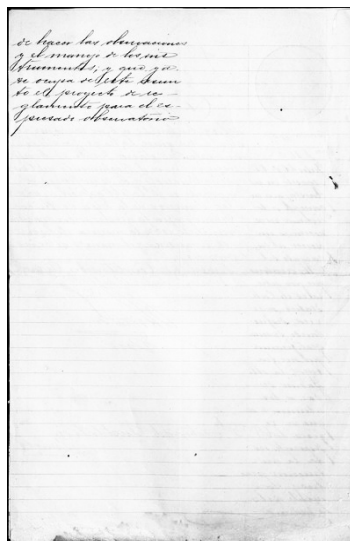 de hacer las observaciones
y el manejo de los ins
trumentos, y que ya
se ocupa de este asun
to el proyecto de re-
glamento para el es-
presado observatorio